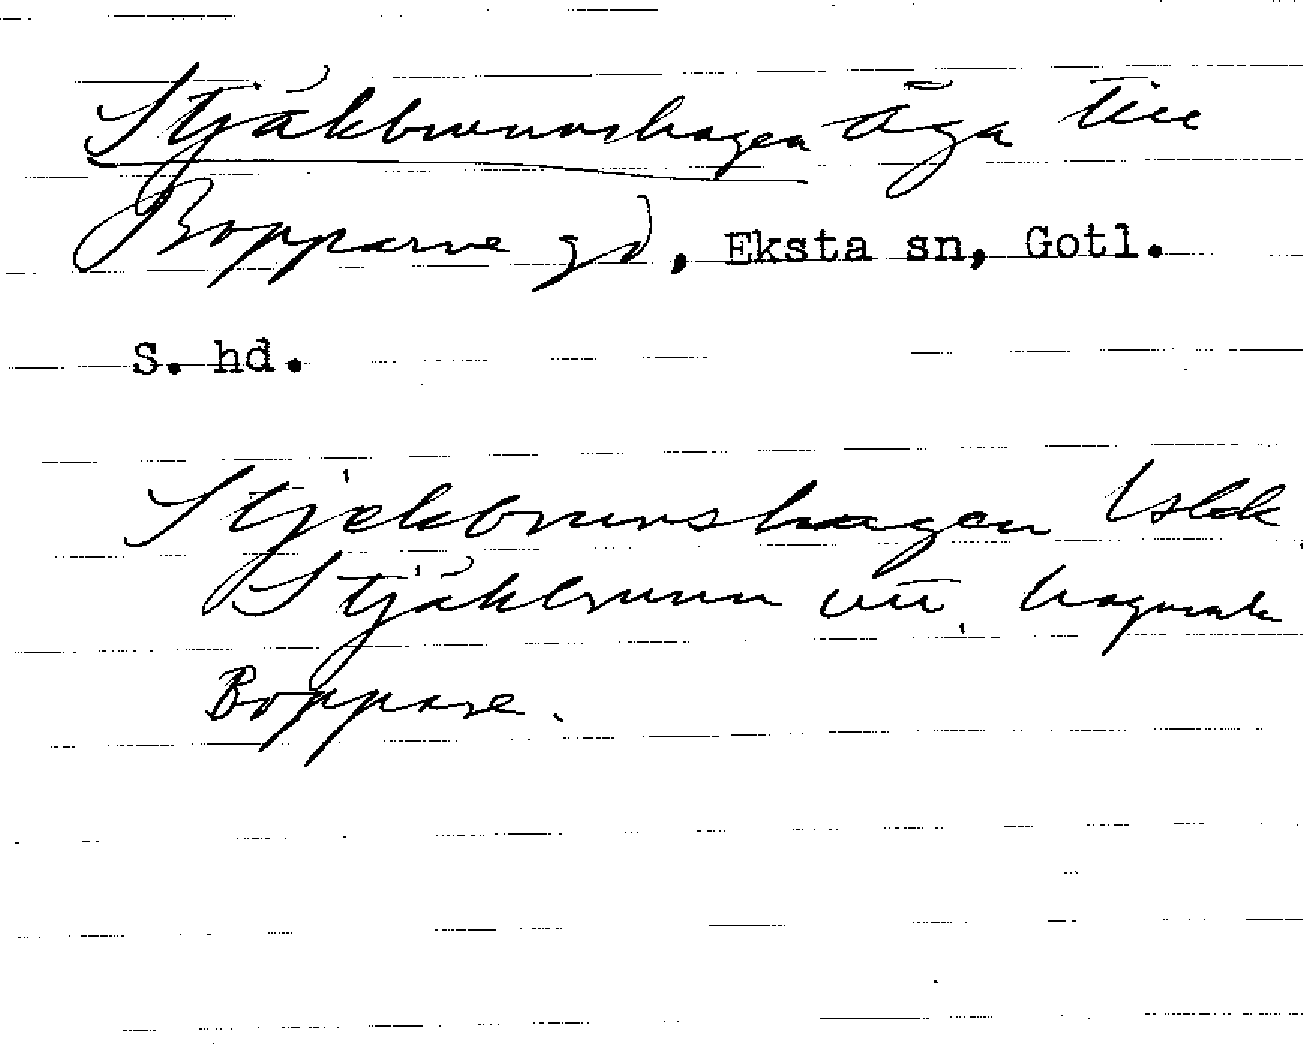 Stjäkbrunnshagen äga till
Bopparve gd, Eksta sn, Gotl.
S. hd.
Stjekbrunshagen
Stjäkbrunn hagmark
Boppare.